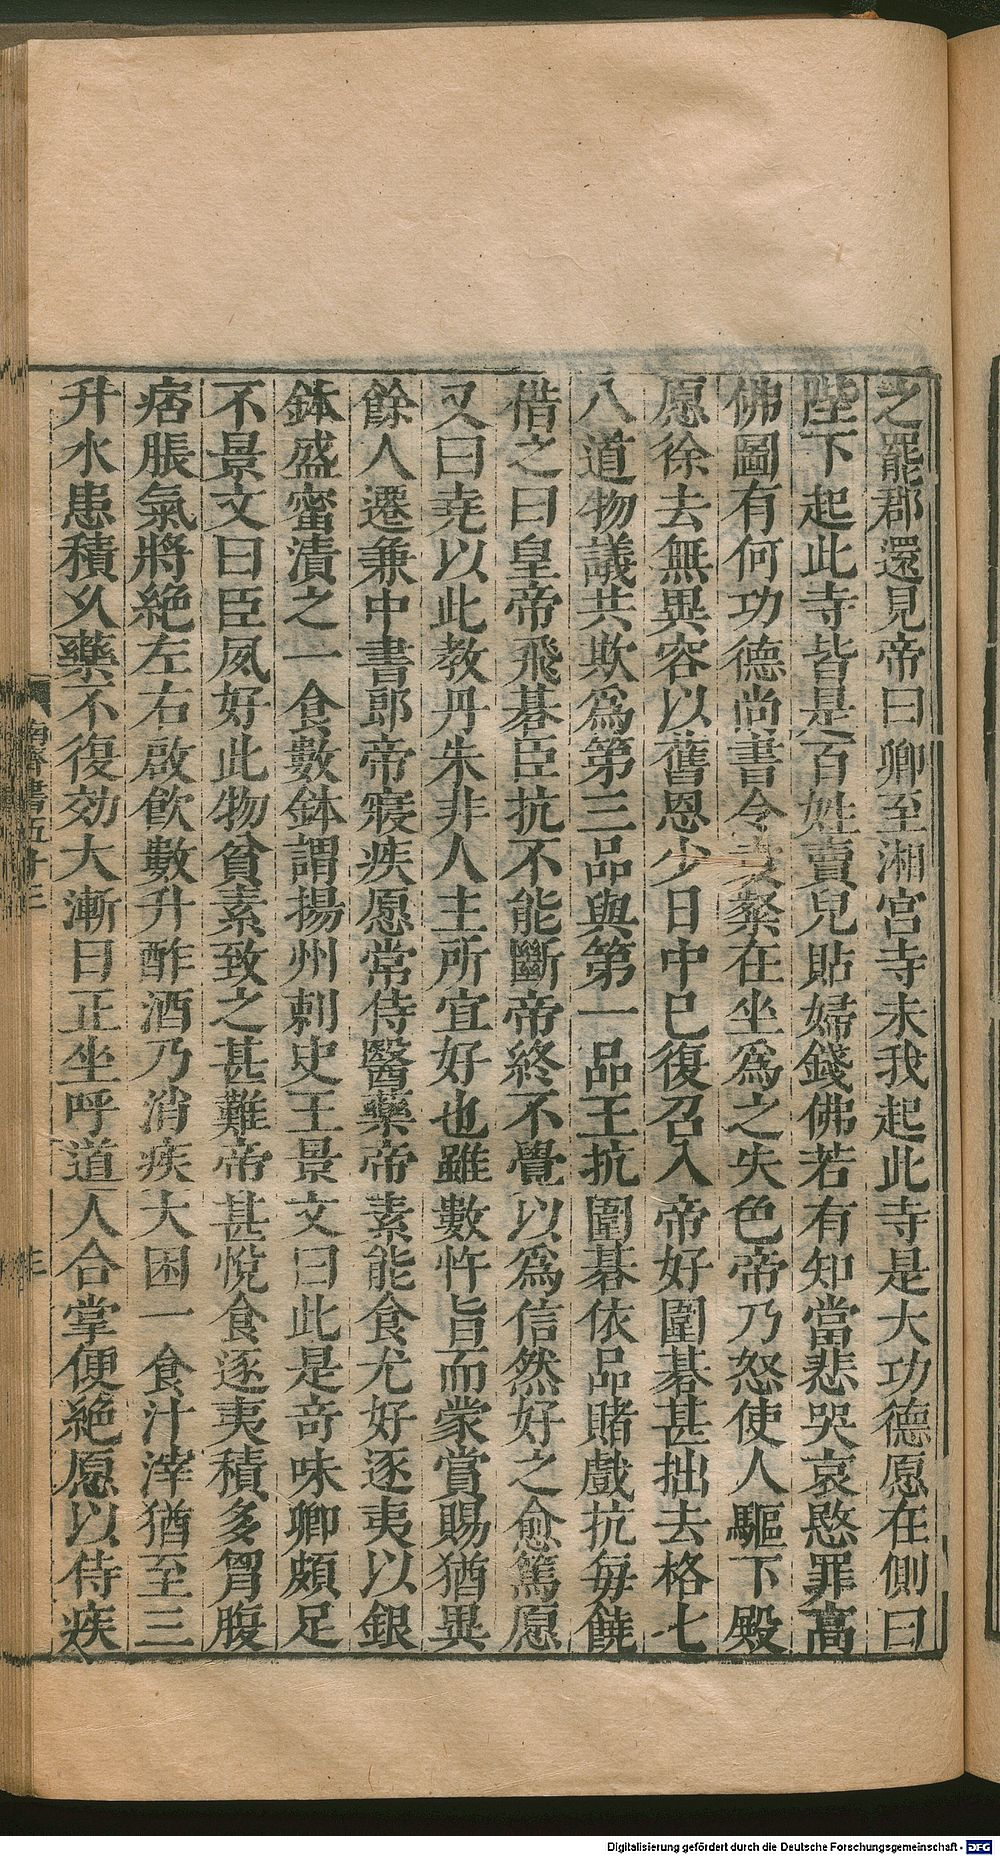 之罷郡還見帝曰卿至湘宮寺未我起此寺是大功德愿在側曰
陛下起此寺皆是百姓賣兒貼婦錢佛若有知當悲哭哀愍罪高
佛圖有何功德尚書令袁粲在坐爲之失色帝乃怒使人驅下殿
愿徐去無異容以舊恩少日中巳復召入帝好圍棊甚拙去格七
八道物議共欺爲第三品與第一品王抗圍棊依品賭戲抗每饒
借之曰皇帝飛棊臣抗不能斷帝終不覺以爲信然好之愈篤愿
又曰堯以此教丹朱非人主所宜好也雖數忤旨而蒙賞賜猶異
餘人遷兼中書郎帝寢疾愿常侍醫藥帝素能食尤好逐夷以銀
鉢盛蜜漬之一食數鉢謂揚州刺史王景文曰此是奇味卿頗足
不景文曰臣夙好此物貧素致之甚難帝甚悅食逐夷積多胷腹
痞脹氣將絕左右啟飲數升酢酒乃消疾大困一食汁滓猶至三
升水患積久藥不復効大漸日正坐呼道人合掌便絕愿以侍疾
南齊書五十三
Digitalisierung gefördert durch die Deutsche Forschungsgemeinschaft - DFG